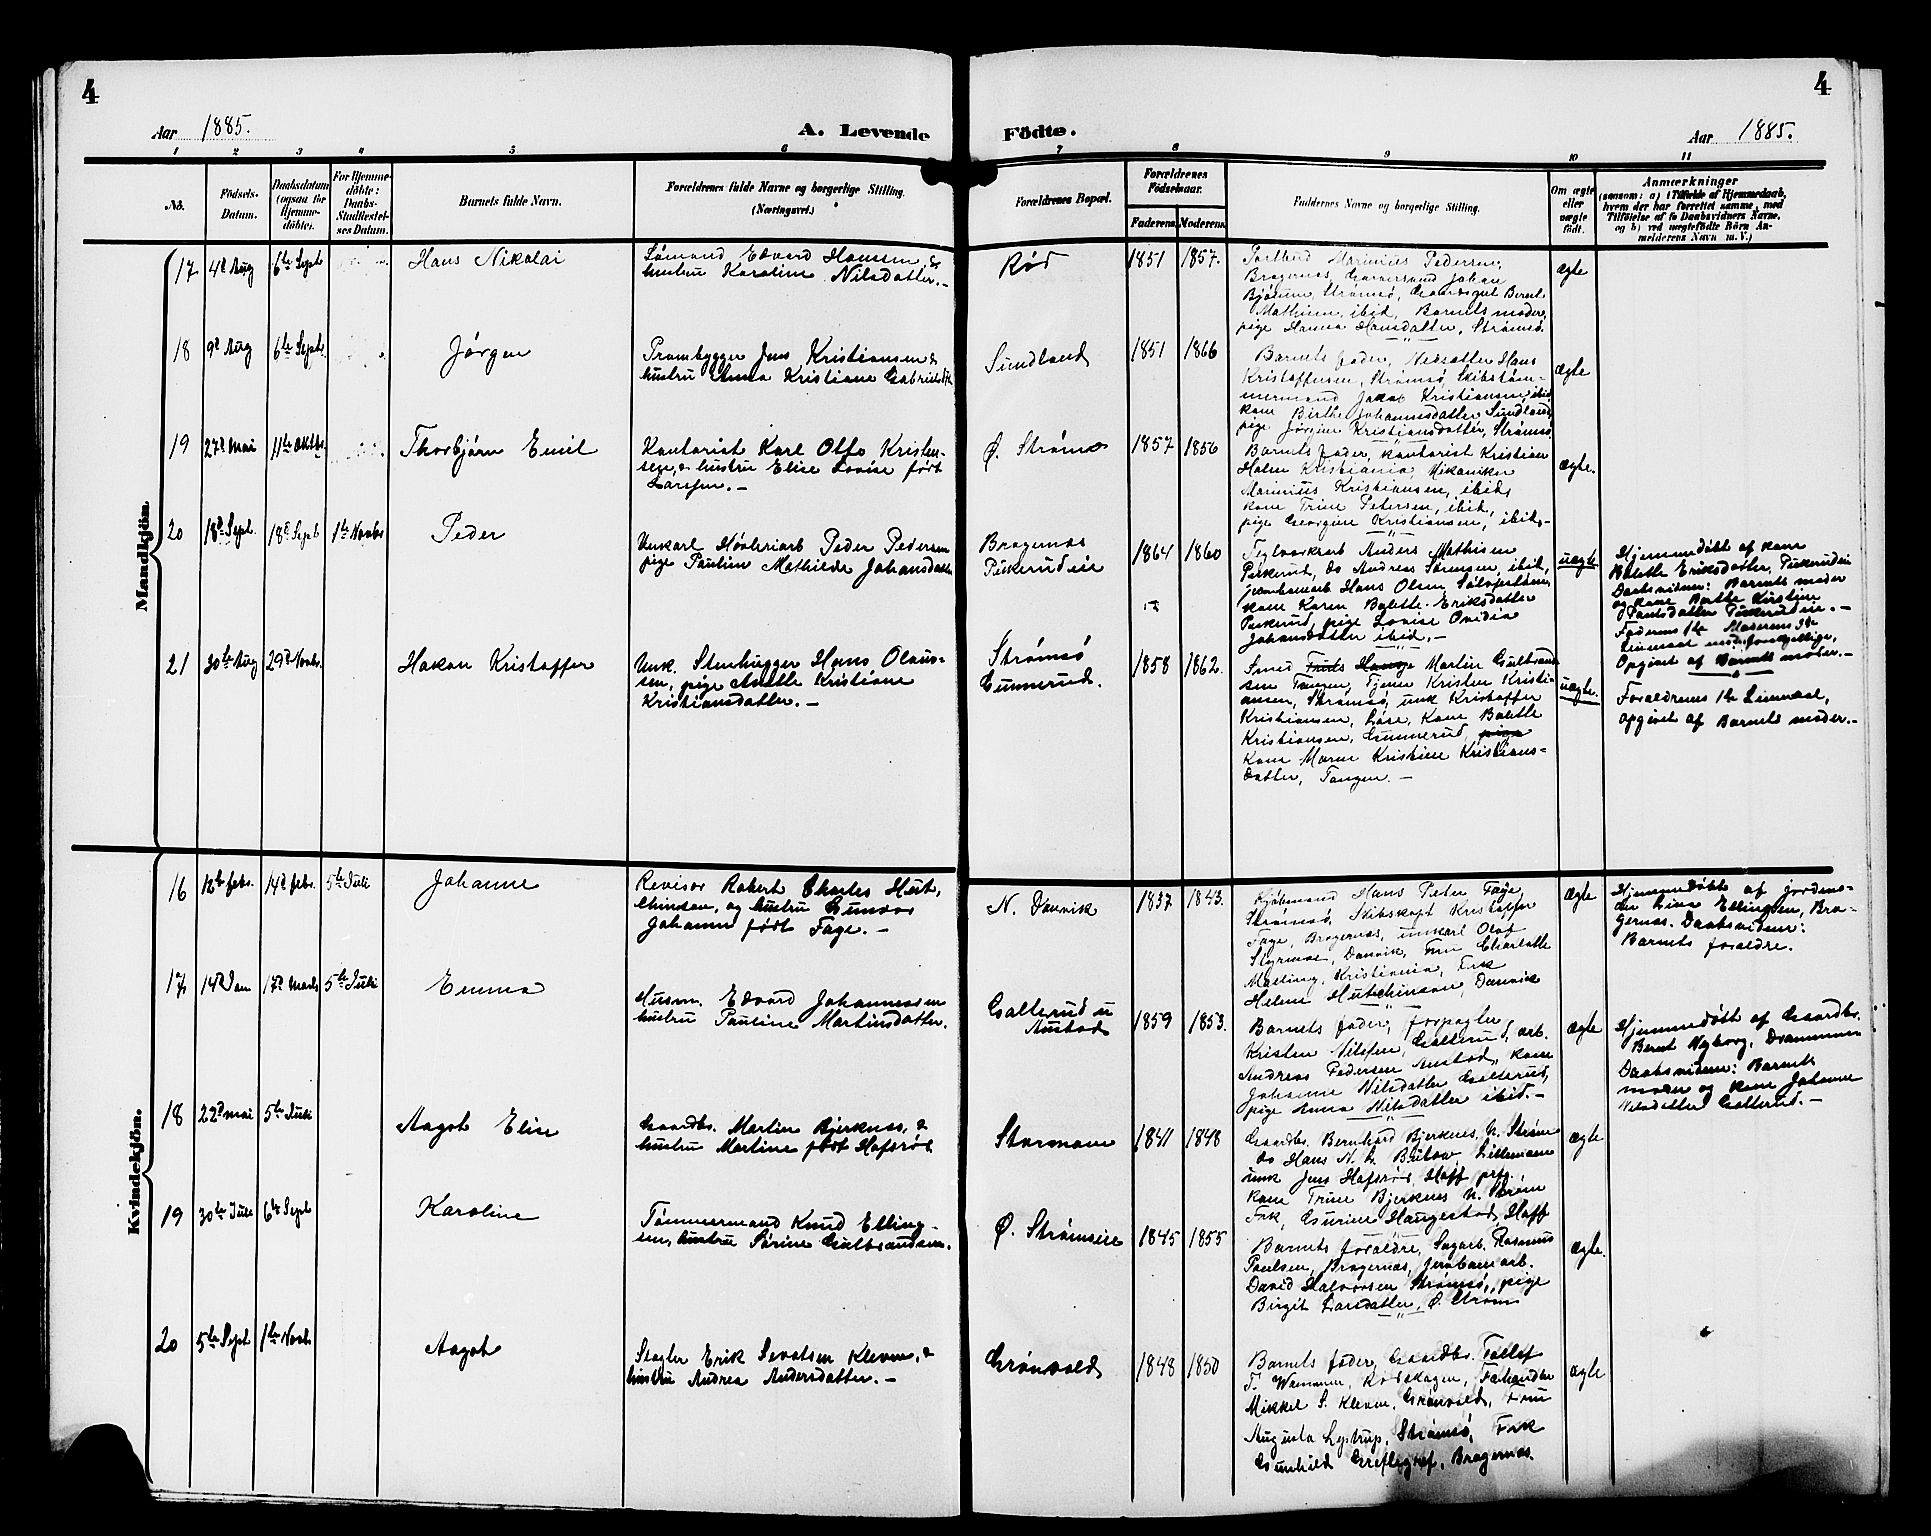 4
4
Aar 1885.
A. Levende
Födte.
Aar 1885.
1 2 3 4 5 6 7 8 9 10 11
No.
Födsels-
Datum.
Daabsdatum
(ogsaa for
Hjemme-
döbte).
For Hjemme-
döbte:
Daabs-
Stadfæstel-
ses Datum.
Barnets fulde Navn.
Forældrenes fulde Navne og borgerlige Stilling.
(Næringsvei.)
Forældrenes Bopæl.
Forældrenes
Födselsaar.
Faderens.
Moderens.
Faddernes Navne og borgerlige Stilling.
Om ægte
eller
uægte
født.
Anmærkninger
(saasom: a) i Tilfælde af Hjemmedaab,
hvem der har forrettet samme, med
Tilföielse af to Daabsvidners Navne,
og b) ved uægtefödte Börn An-
melderens Navn m. V.)
Mandkjön.
17 4d Aug 6te Sept
Hans Nikolai
Sømand Edvard Hansen &
hustru Karoline Nilsdatter. -
Rød
1851 1857.
Marinius Pedersen,
Bragernes, Johan
Strømsø, Bernt
Mathisen, ibid, Barnets moder,
pige Hanna Hansdatter, Strømsø
ægte
18 9d Aug 6te Sept
Jørgen
Prambygger Jens Kristiansen &
hustru Anna Kristiane Gabrielsdtr
Sundland
1851 1866
Barnets fader, Hans
Kristoffersen, Strømsø, Skibstøm-
mermand Jakob Kristiansen, ibid
kone Birthe Johannesdatter Sundland,
pige Jørgine Kristiansdatter, Strømsø
ægte
19 27d Mai 11te Oktbr.
Thorbjørn Emil
Kontorist Karl Otto Kristen-
sen, & hustru Elise Lovise født
Larssen. -
Ø. Strømsø
1857 1856
Barnets fader, kontorist Kristian
Holm Kristiania, Mekaniker
Marinius Kristiansen, ibid,
kone Trine Petersen, ibid,
pige Georgine Kristiansen, ibid. -
ægte.
20 18d Sept. 18d Sept 1te Novbr
Peder
Unkarl Høvleriarb Peder Pedersen
pige Pauline Mathilde Johansdatter
Bragernes
Pukerudeie
1864 1860
Teglverksarb Anders Mathisen
Pukerud, do Andreas Sørensen, ibid,
jernbanearb Hans Olsen
kone Karen Bolette Eriksdatter
Pukerud, pige Lovise Ovidia
Johansdatter ibid. -
uægte
Hjemmedøbt af kone
Bolette Eriksdatter, Pukerudeie
Daabsvidner: Barnets moder
og kone Berthe Kirstine
Hansdatter Pukerudeie. -
Faderens 1te Moderens 3die
Leiermaal med forskjellige,
Opgivet af Barnets moder. -
21 30te Aug 29d Novbr.
Hakon Kristoffer
Unk. Stenhugger Hans Olaus-
sen, pige Anette Kristiane
Kristiansdatter. -
Strømsø
Gunnerud.
1858 1862.
Smed Martin Gulbrand-
sen Tangen, Tjener Kristen Kristi-
ansen, Strømsø, unk Kristoffer
Kristiansen, kone Bolette
Kristiansen, Gunnerud, pige
Kone Maren Kristine Kristians-
datter, Tangen. -
uægte.
Forældrenes 1te Leiermaal,
opgivet af Barnets moder. -
Kvindekjön.
16 12te febr. 14d febr. 5te Juli
Johanne
Revisor Robert Charles Hut-
chinson, og hustru Gunvor
Johanne født Faye. -
N. Danvik
1837 1843.
Kjøbmand Hans Peter Faye,
Strømsø, Skibskapt Kristoffer
Faye, Bragernes, unkarl Olaf
Styrmoe, Danvik, Fru Charlotte
Kristiania, Frk
Helene Hutchinson, Danvik
ægte
Hjemmedøbt af jordemo-
der Lina Ellingsen, Bra-
gernes. Daabsvidner:
Barnets forældre.
17 14d Jan 17d Marts 5te Juli
Emma
Husm. Edvard Johannessen
hustru Pauline Martinsdatter.
Galterud u
Austad
1859 1853.
Barnets fader, forpagter
Kristen Nilssen, Galterud, arb.
Andreas Pedersen Austad, kone
Johanne Nilsdatter Galterud,
pige Anna Nilsdatter ibid. -
ægte
Hjemmedøbt af Gaardbr.
Bernt Nyborg, Drammen
Daabsvidner: Barnets
moder og kone Johanne
Nilsdatter Galterud. -
18 22d mai 5te Juli
Aagot Elise
Gaardbr. Martin Bjerknes, &
hustru Martine født Hafsrød
Stormoen
1841 1848
Gaardbr. Bernhard Bjerknes, N. Strøm
do Hans N. G. Bülow, Lillemoen
unk Jens Hafsrød, Hoff prg.
kone Trine Bjerknes N. Strøm
Frk, Gurine Haugestad, Hoff
ægte
19 30te Juli 6te Sept
Karoline
Tømmermand Knud Elling-
sen, hustru Sørine Gulbrandsen.
Ø. Strømseie
1845 1855
Barnets forældre, Sagarb. Rasmus
Paulsen, Bragernes, jernbanearb.
David Halvorsen Strømsø, pige
Birgit Larsdatter, Ø. Strøm
ægte.
20 5te Sept 1te Novbr
Aagot
Slagter Erik Sevatsen Kleven, &
hustru Andrea Andersdatter. -
Grønvold
1848 1850
Barnets fader, Gaardbr. Tollef
T. Wammer, Kobbhagen,
Mikkel S. Kleven, Grønvold, Fru
Augusta Lystrup, Strømsø, Frk
Gunhild Bragernes.
ægte